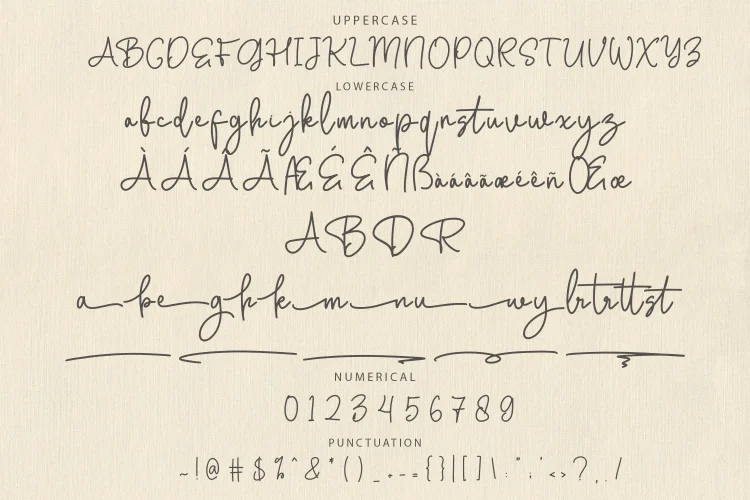 UPPERCASE
ABCDEFGHIJKLMNOPQRSTUVWXYZ
LOWERCASE
abcdefghijklmnopqrstuvwxyz
ÀÁÂÃÆÉÊÑßàáâãæéêñŒœ
ABDR
a be g h k m nu wy br tr tt st
NUMERICAL
0123456789
PUNCTUATION
~!@#$%^&*()_+-={}|[]\:";'<>?,./